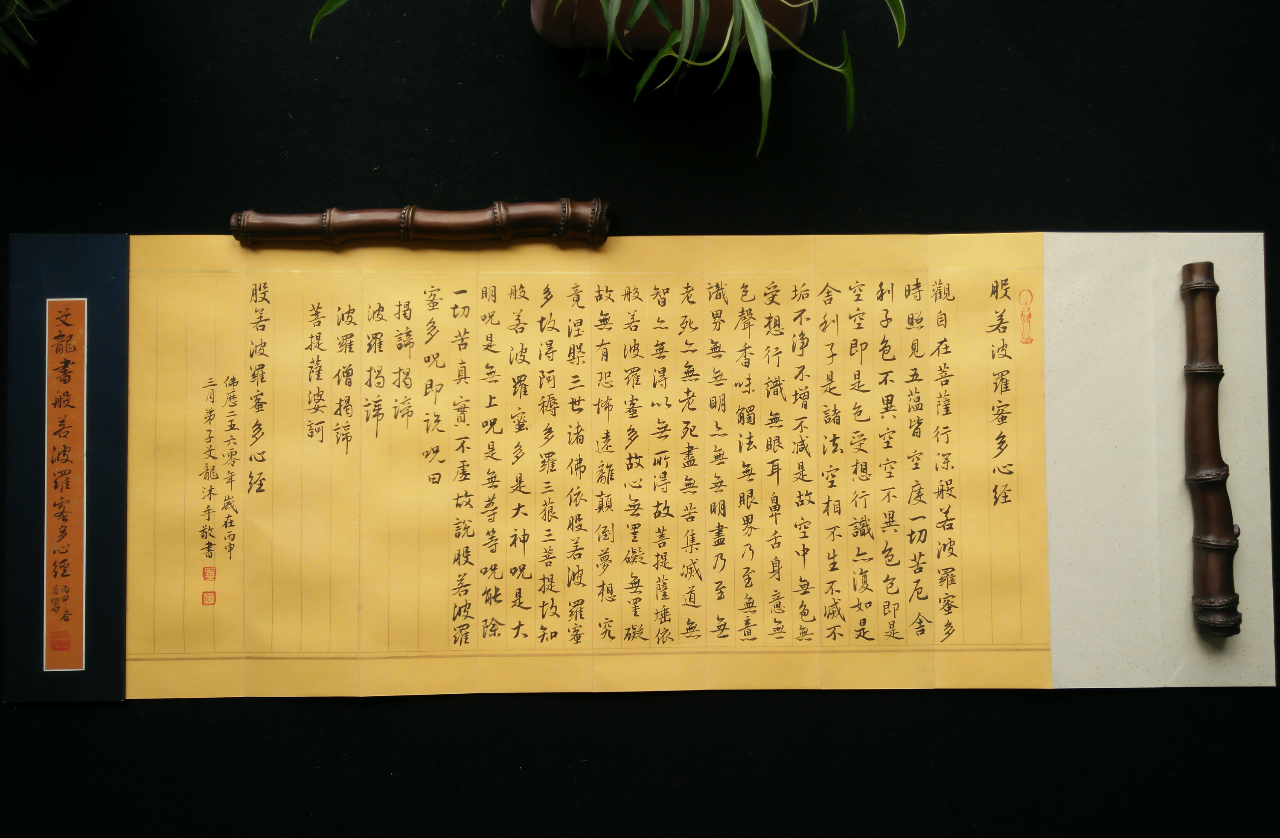 般若波羅蜜多心經
觀自在菩薩行深般若波羅蜜多
時照見五蕰皆空度一切苦厄舍
利子色不異空空不異色色即是
空空即是色受想行識亦復如是
舍利子是諸法空相不生不滅不
垢不淨不增不减是故空中無色無
受想行識無眼耳鼻舌身意無
色聲香味觸法無眼界乃至無意
識界無無明亦無無明盡乃至無
老死亦無老死盡無苦集滅道無
智亦無得以無所得故菩提薩埵依
般若波羅蜜多故心無罣礙無罣礙
故無有恐怖遠離顛倒夢想究
竟涅槃三世諸佛依般若波羅蜜
多故得阿耨多羅三藐三菩提故知
般若波羅蜜多是大神呪是大
明呪是無上呪是無等等呪能除
一切苦真實不虛故說般若波羅
蜜多呪即說呪曰
揭諦揭諦
波羅揭諦
波羅僧揭諦
菩提薩婆訶
般若波羅蜜多心經
佛曆二五六零年歲在丙申
三月弟子艾龍沐手敬書
艾龍書般若波羅蜜多心經
丙申春